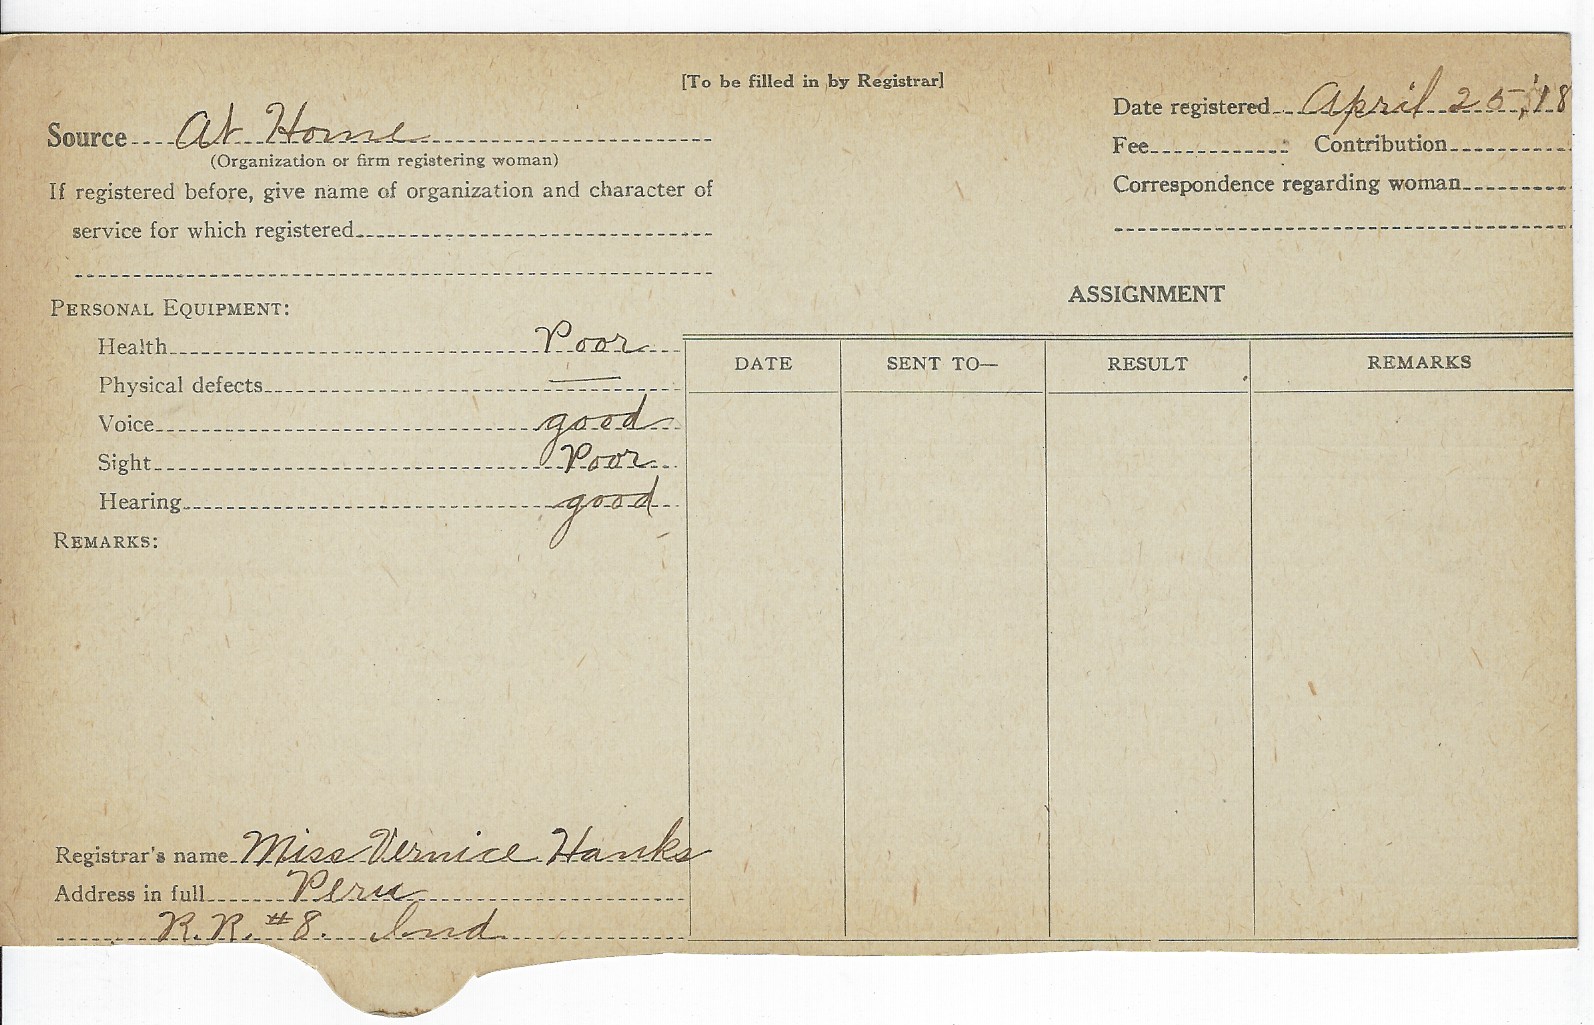 [To be filled in by Registrar]
Source At Home
(Organization or firm registering woman)
If registered before, give name of organization and character of
service for which registered
Date registered April 25, '18
Fee Contribution
Correspondence regarding woman
PERSONAL EQUIPMENT:
Health Poor
Physical defects —
Voice good
Sight Poor
Hearing good
REMARKS:
ASSIGNMENT
DATE SENT TO— RESULT REMARKS
Registrar's name Miss Vernice Hanks
Address in full Peru
R.R. #8. Ind